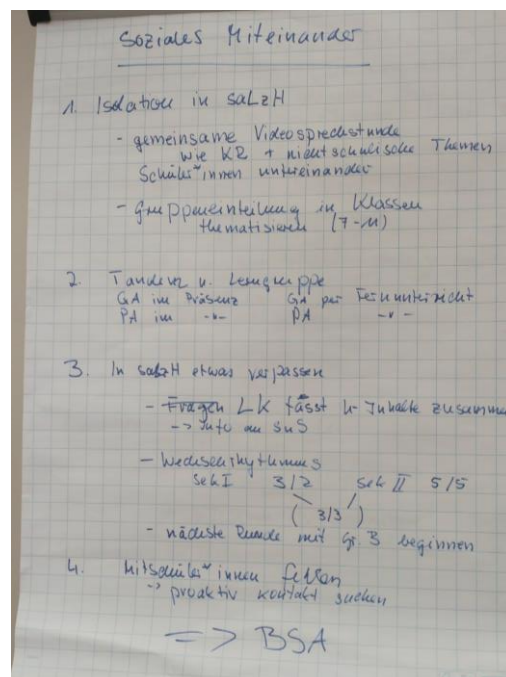 Soziales Miteinander
1. Isolation in saLzH
- gemeinsame Videosprechstunde
wie KR + nichtschulische Themen
Schüler*innen untereinander
- Gruppeneinteilung in Klassen
thematisieren (7-11)
2. Tandem u. Lerngruppe
GA im Präsenz GA per Fernunterricht
PA im -"- PA -"-
3. In saLzH etwas verpassen
- Fragen LK fasst U-Inhalte zusamme
-> Info an SuS
- Wechselrhythmus
Sek I 3/2 Sek II 5/5
( 3/3 )
- nächste Runde mit Gr. B beginnen
4. Mitschüler*innen fehlen
-> proaktiv Kontakt suchen
=> BSA